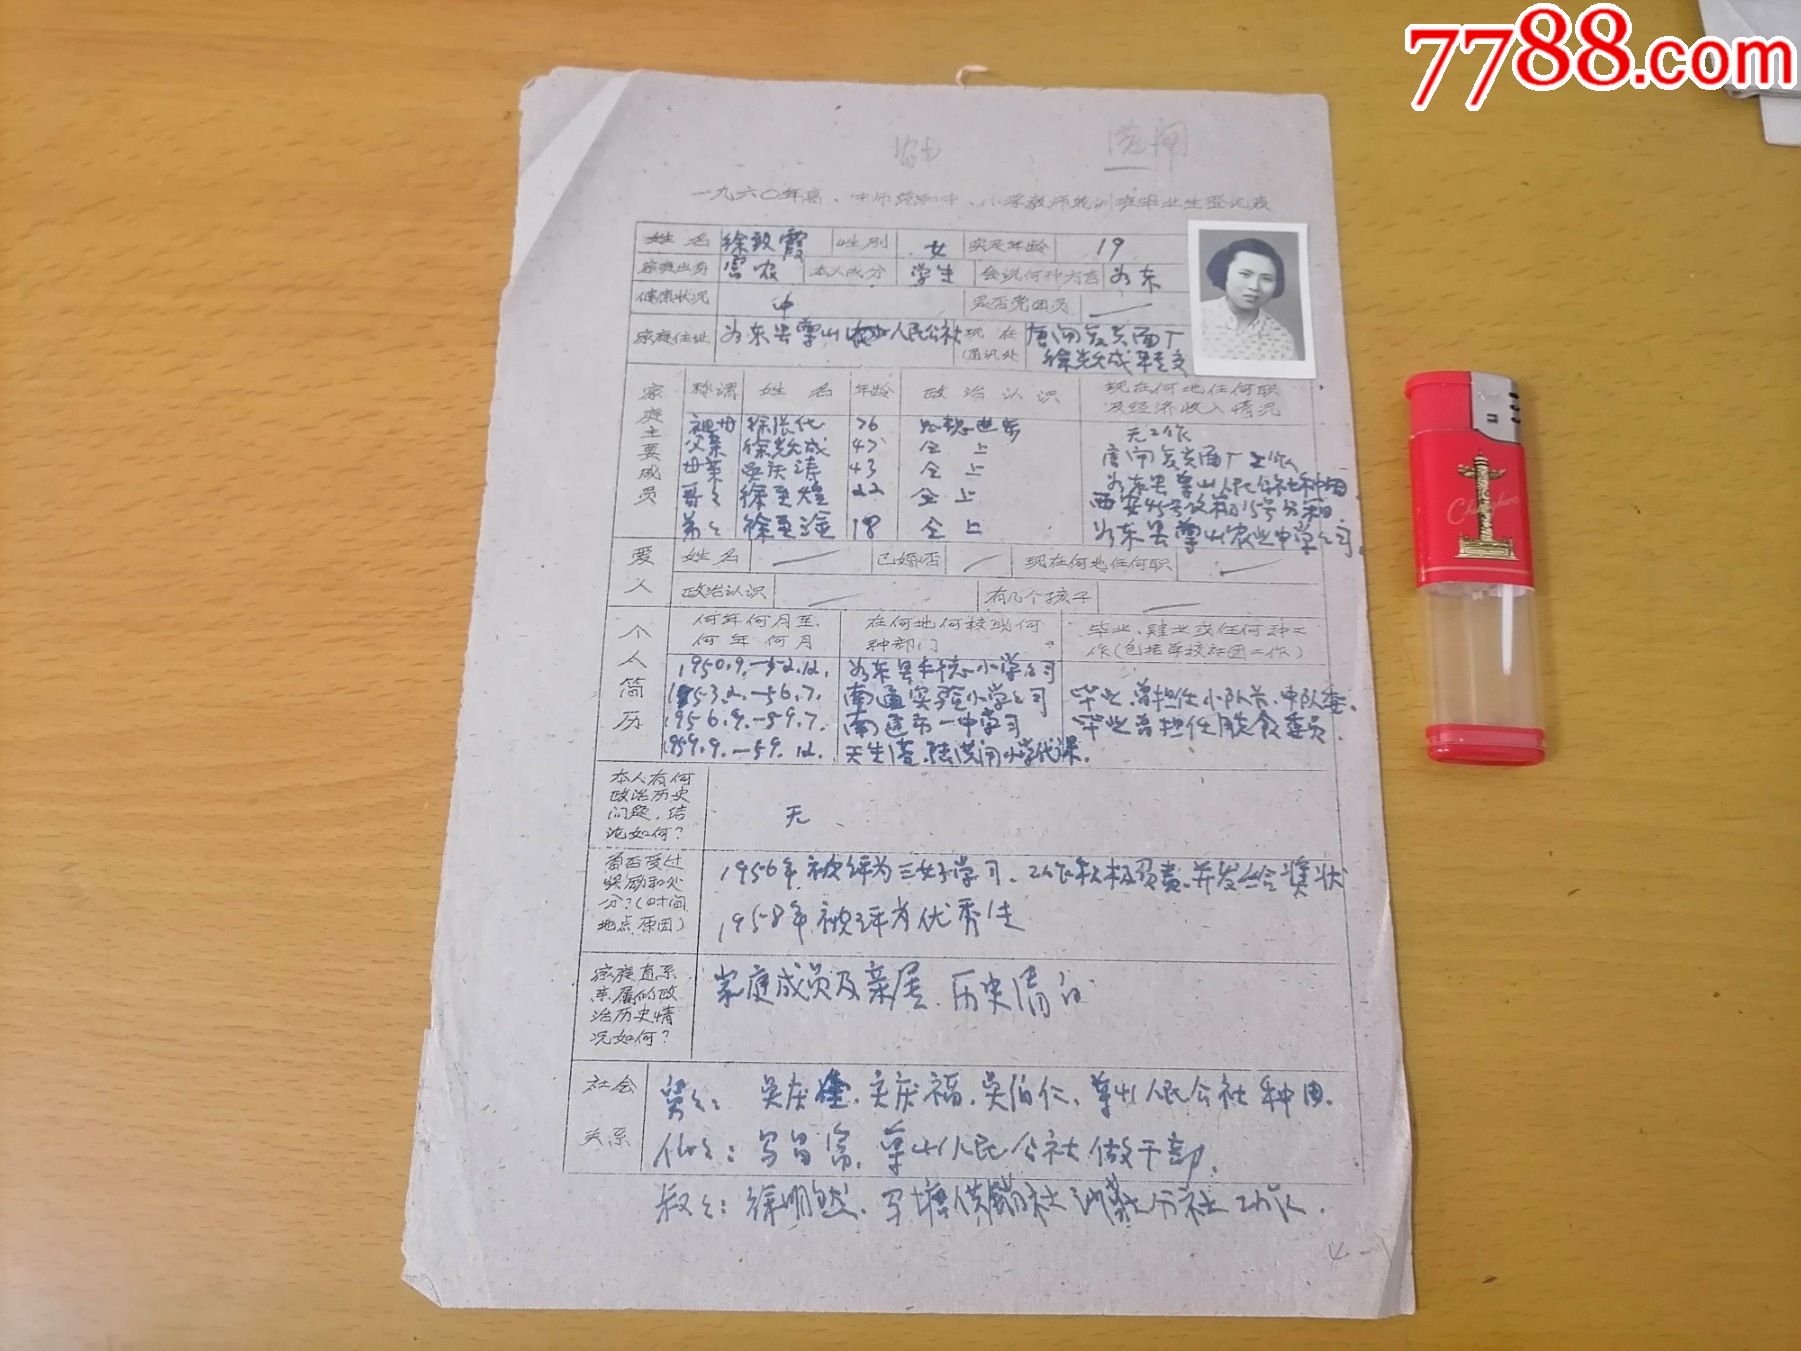 7788.com
港闸
一九六〇年高、中师范和中、小学教师轮训班毕业生登记表
姓名 徐致霞 性别 女 实足年龄 19
家庭出身 富农 本人成分 学生 会说何种方言 如东
健康状况 中 是否党团员
家庭住址 如东县掌山农业人民公社 现在通讯处 唐闸复兴面厂
家庭主要成员 称谓 姓名 年龄 政治认识 现在何地任何职及经济收入情况
祖母 徐张氏 76 无工作
父亲 47 仝上 唐闸复兴面厂工作
母亲 吴庆涛 43 仝上 如东县掌山人民公社种田
哥哥 22 仝上
弟弟 18 仝上 如东县掌山农业中学学习
爱人 姓名 已婚否 现在何地任何职
政治认识 有几个孩子
个人简历 何年何月至何年何月 在何地何校或何种部门 毕业、肄业或任何种工作(包括学校社团工作)
1950.9.—52.12. 小学学习
1953.2.—56.7. 南通实验小学学习 毕业、曾担任小队长、中队委.
1956.9.—59.7. 南通市一中学习 毕业曾担任膳食委员.
1959.9.—59.12. 天生港、陆洪闸小学代课.
本人有何政治历史问题,结论如何? 无
曾否受过奖励和处分?(时间地点原因) 1956年被评为三好学习、工作积极负责、并发给奖状
1958年被评为优秀生
家庭直系亲属的政治历史情况如何? 家庭成员及亲属、历史清白
社会关系 舅舅: 吴庆福、吴伯仁、掌山人民公社种田.
伯伯: 掌山人民公社做干部.
叔叔: 徐明然、